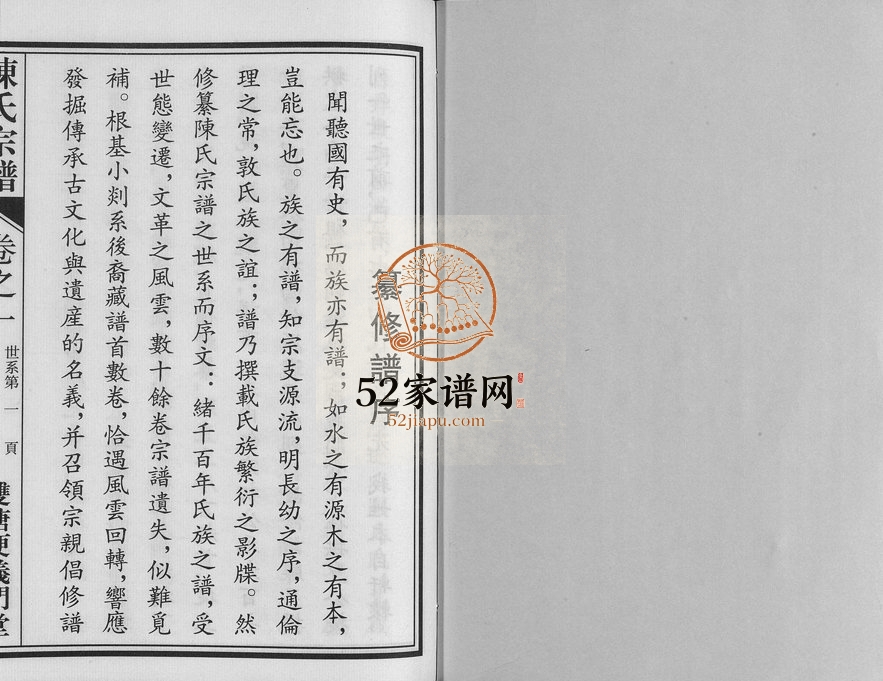 纂修譜序
聞聽國有史，而族亦有譜；如水之有源木之有本，
豈能忘也。族之有譜，知宗支源流，明長幼之序，通倫
理之常，敦氏族之誼；譜乃撰載氏族繁衍之影牒。然
修纂陳氏宗譜之世系而序文：緒千百年氏族之譜，受
世態變遷，文革之風雲，數十餘卷宗譜遺失，似難覓
補。根基小剡系後裔藏譜首數卷，恰遇風雲回轉，響應
發掘傳承古文化與遺産的名義，并召領宗親倡修譜
陳氏宗譜
卷之一
世系第一頁
雙塘便義門堂
52家谱网
52jiapu.com